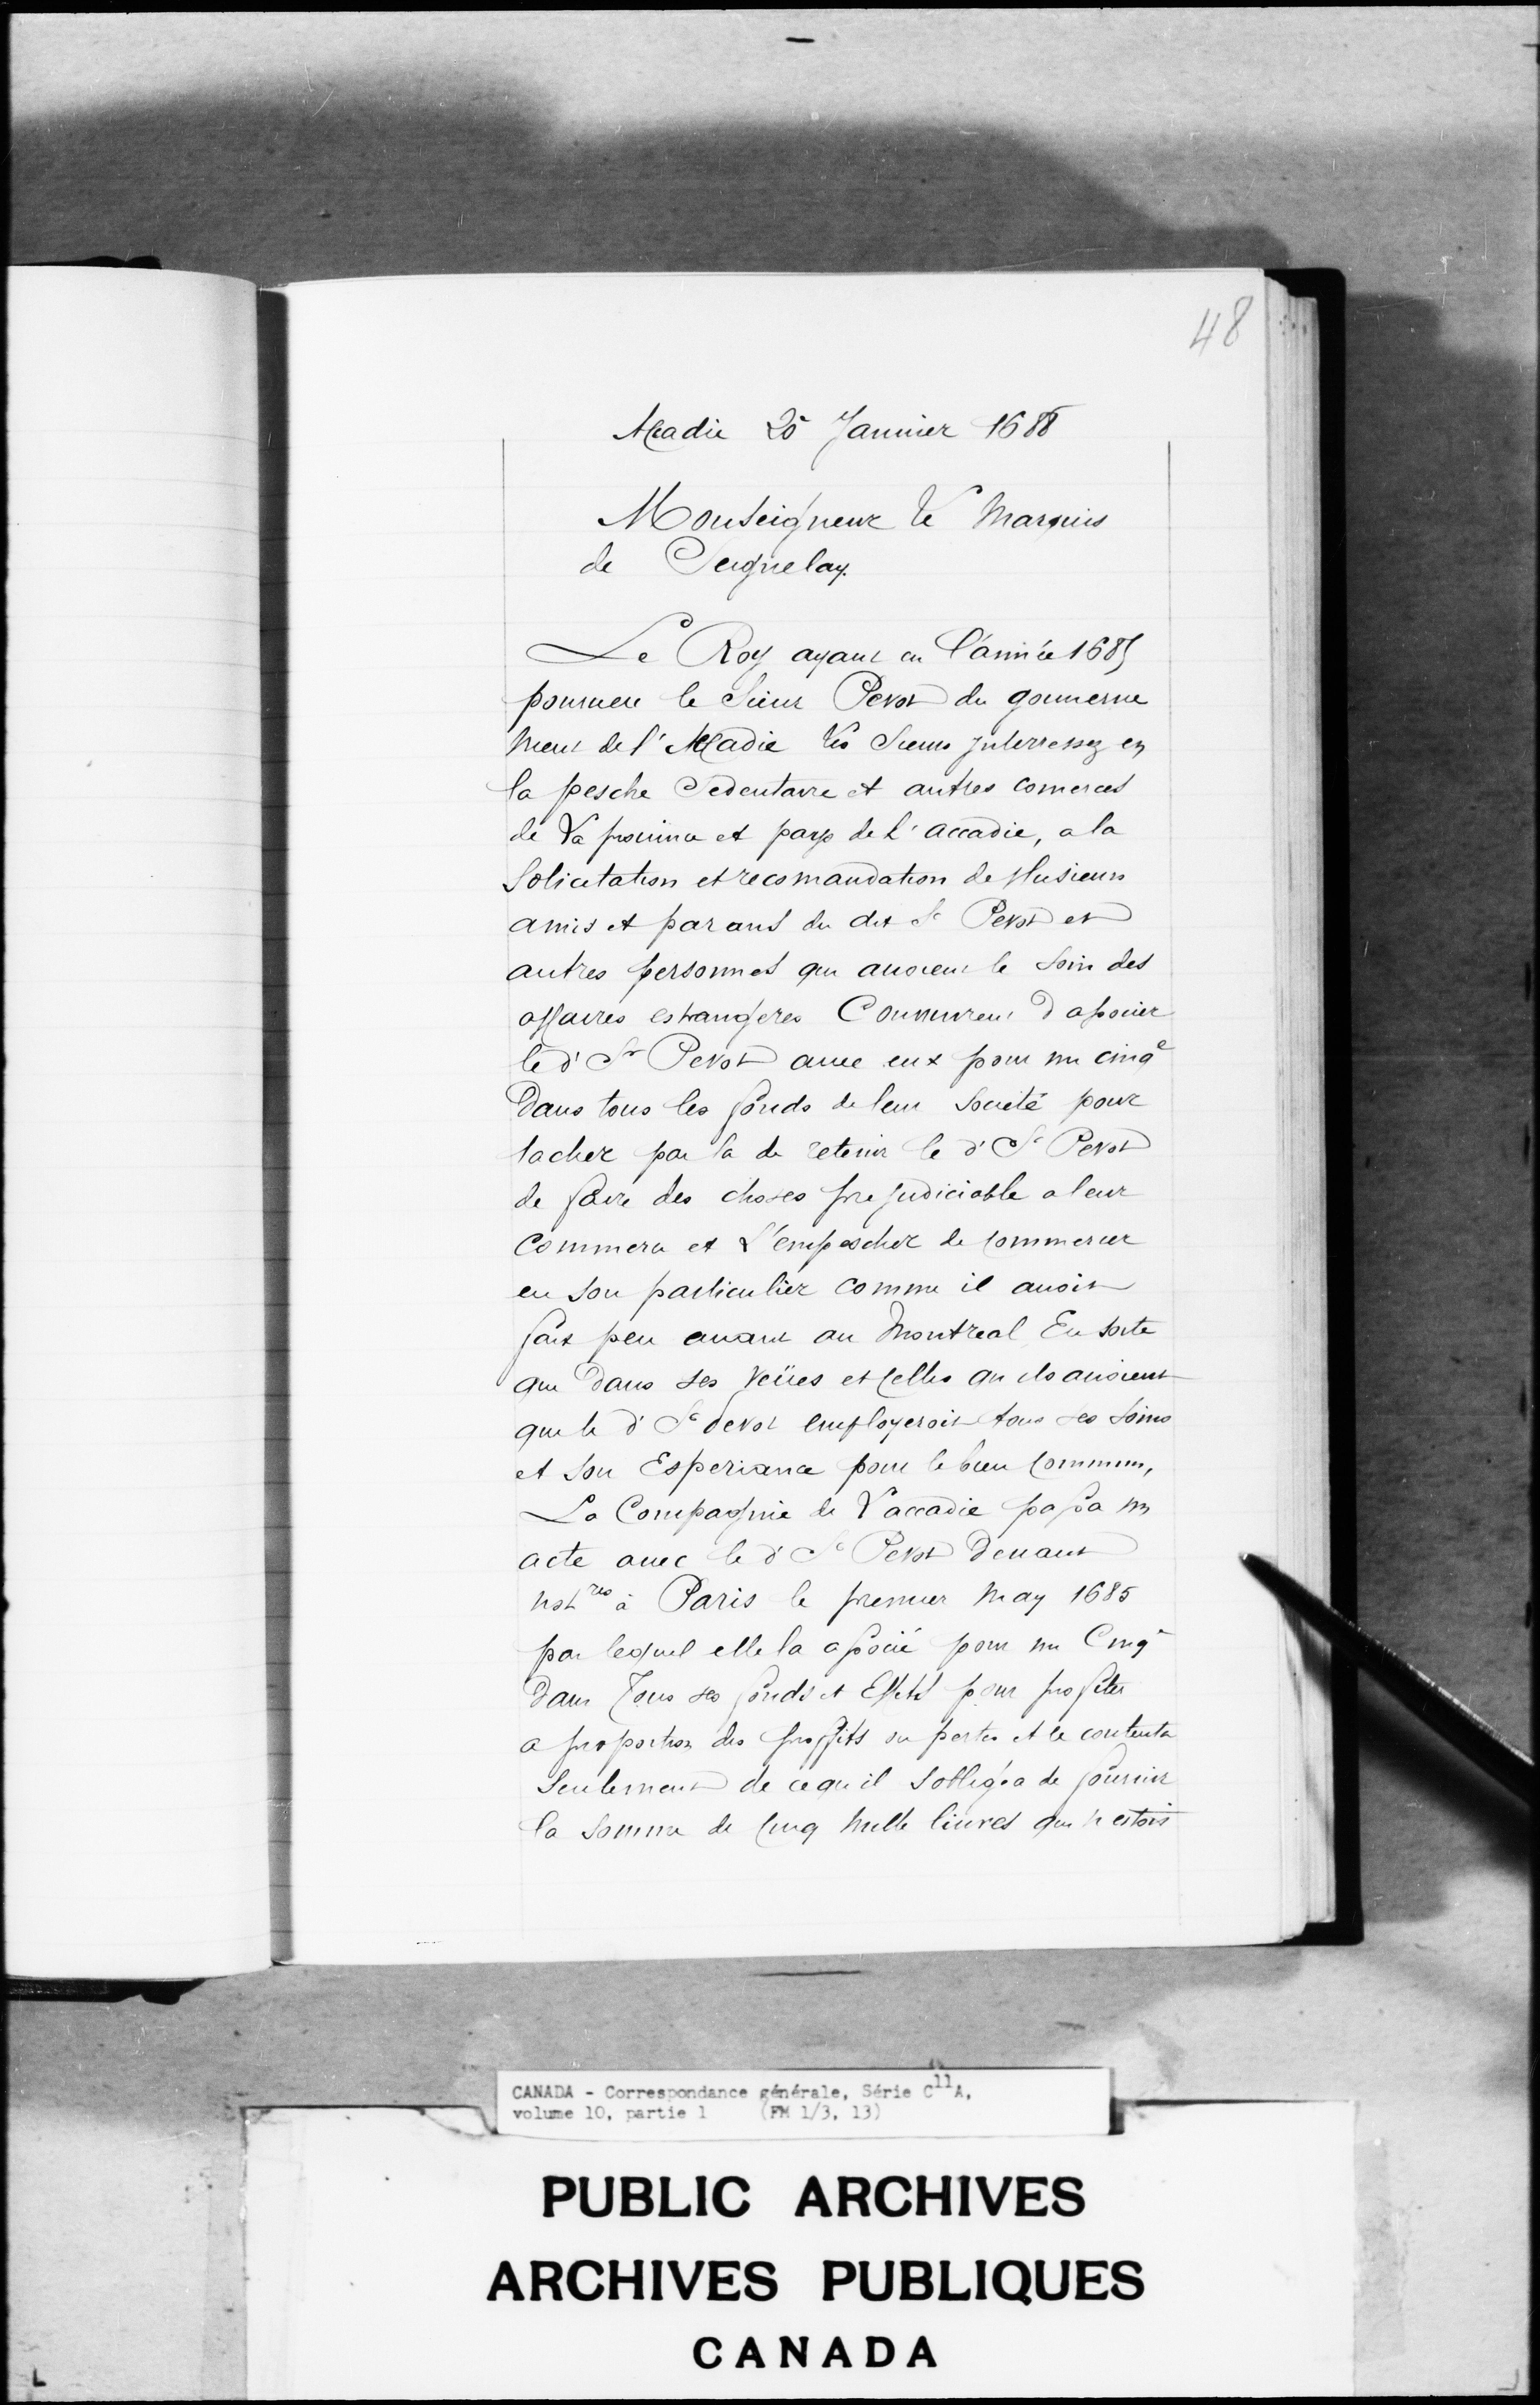 48
Acadie 20 Janvier 1688
Monseigneur le Marquis
de Seignelay.
Le Roy ayant en l'année 1685
pourueu le Sieur Perot du gouuerne
ment de l'Acadie les Sieurs jnterressez en
la pesche Sedentaire et autres comerces
de La prouince et pays de L'accadie, a la
Solicitation et recomandation de plusieurs
amis et parans du dit Sr Perot et
autres personnes qui auoient le soin des
affaires estrangeres Conuinrent d'associer
le d' Sr Perot auec eux pour un cinqe
Dans tous les fonds de leur Société pour
tacher par la de retenir le d' Sr Perot
de faire des choses prejudiciable a leur
Commerce et L'empescher de commercer
en son particulier comme il auoit
fait peu auant au Montreal En sorte
que Dans ses veües et celles qu ils auoient
que le d' Sr Perot employeroit tous ses soins
et son Esperiance pour le bien commun,
La Compagnie de L'accadie passa un
acte auec le d' Sr Perot Deuant
notres à Paris le premier May 1685
par lequel elle la associé pour un Cinqe
Dans Tous ses fonds et Effets pour profiter
a proportion des proffits ou pertes et se contenta
Seulement de ce qu il sobligea de fournir
la somme de Cinq Mille liures qui n estoit
CANADA - Correspondance générale, Série C11A,
volume 10, partie 1 (FM 1/3, 13)
PUBLIC ARCHIVES
ARCHIVES PUBLIQUES
CANADA
L